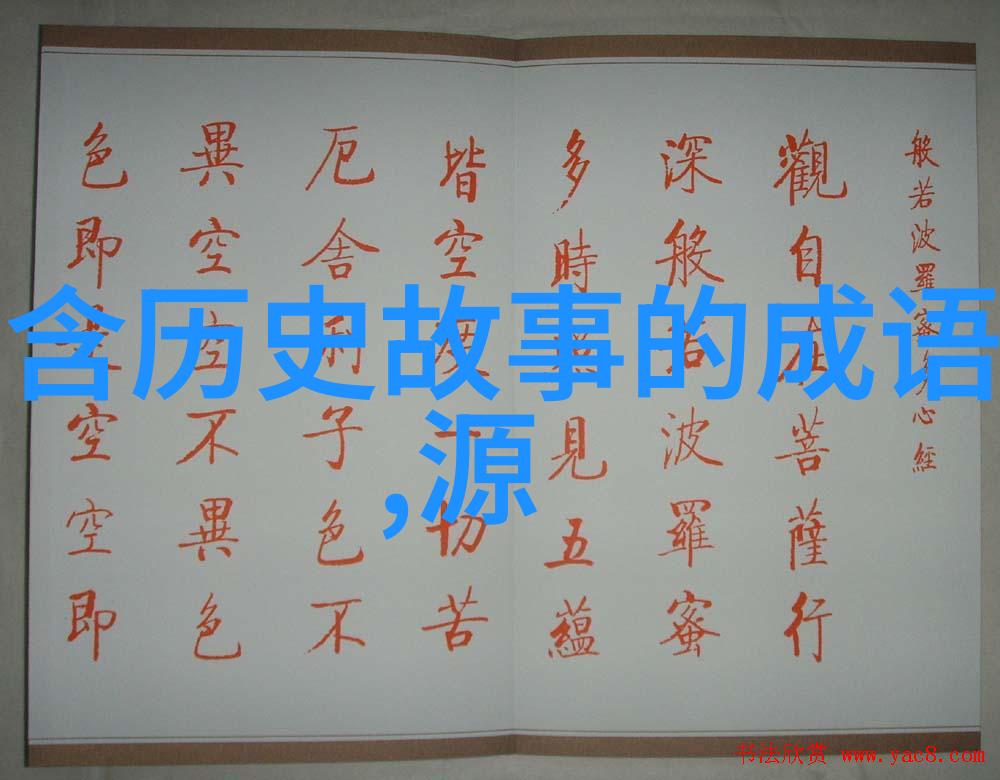 含历史故事的成语
,源
般若波羅蜜多心經
觀自在菩薩行
深般若波羅蜜
多時照見五蘊
皆空度一切苦
厄舍利子色不
異空空不異色
色即是空空即
书法欣赏 www.yac8.com